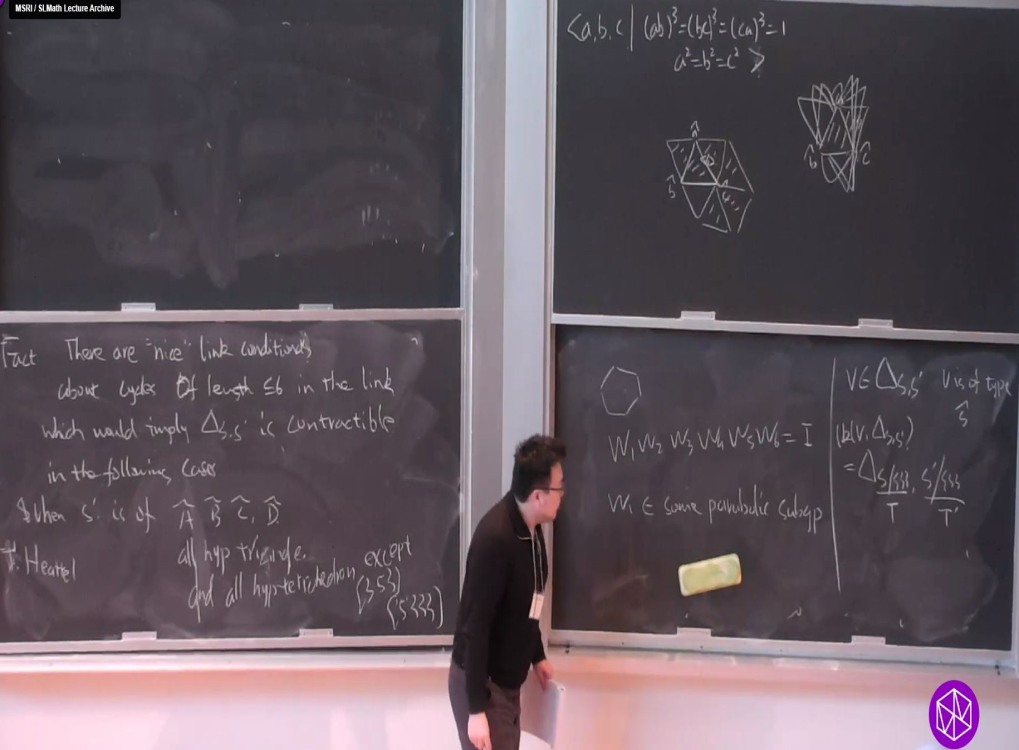 MSRI / SLMath Lecture Archive
<a, b, c | (ab)³ = (bc)³ = (ca)³ = 1
a² = b² = c² >
Fact There are "nice" link conditions
about cycles of length ≤6 in the link
which would imply Δs,s' is contractible
in the following cases
when s' is of Ã B̃ C̃, D̃
J. Heattel
all hyp triangle.
and all hyp tetrahedron except
(353)
(5333)
W₁ W₂ W₃ W₄ W₅ W₆ = I
Wᵢ ∈ some parabolic subgp
V ∈ Δs,s' V is of type
ŝ
lk(V, Δs,s')
= Δ s/{s}, s'/{s}
T T'